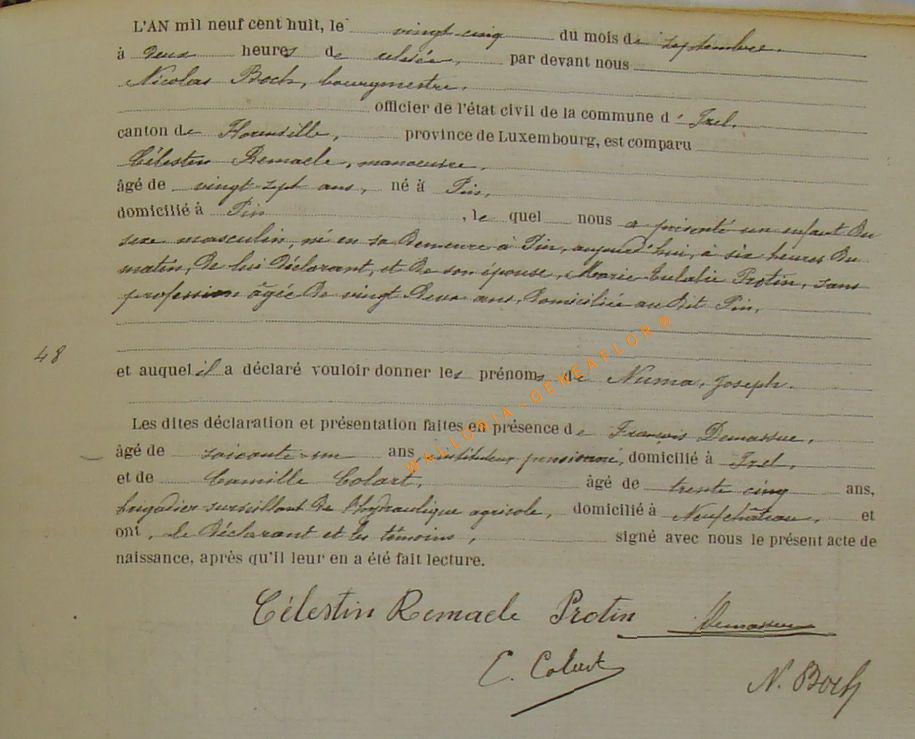 L'AN mil neuf cent huit, le vingt-cinq du mois de septembre,
à deux heures de relevée, par devant nous
Nicolas Boch, bourgmestre,
officier de l'état civil de la commune d'Izel,
canton de Florenville, province de Luxembourg, est comparu
Célestin Remacle, manoeuvre,
âgé de vingt-sept ans, né à Pin,
domicilié à Pin, le quel nous a présenté un enfant du
sexe masculin, né en sa demeure à Pin, aujourd'hui, à six heures du
matin, de lui déclarant, et de son épouse, Marie Eulalie Protin, sans
profession âgée de vingt deux ans, domiciliée au dit Pin,
48
et auquel il a déclaré vouloir donner les prénoms de Numa, Joseph.
Les dites déclaration et présentation faites en présence de François Demasure,
âgé de soixante-un ans instituteur pensionné, domicilié à Izel,
et de Camille Colart, âgé de trente cinq ans,
brigadier surveillant de l'hydraulique agricole, domicilié à Neufchâteau, et
ont, le déclarant et les témoins, signé avec nous le présent acte de
naissance, après qu'il leur en a été fait lecture.
Célestin Remacle Protin
C. Colart
N. Boch
WALLONIA - GENEAFLOR ®